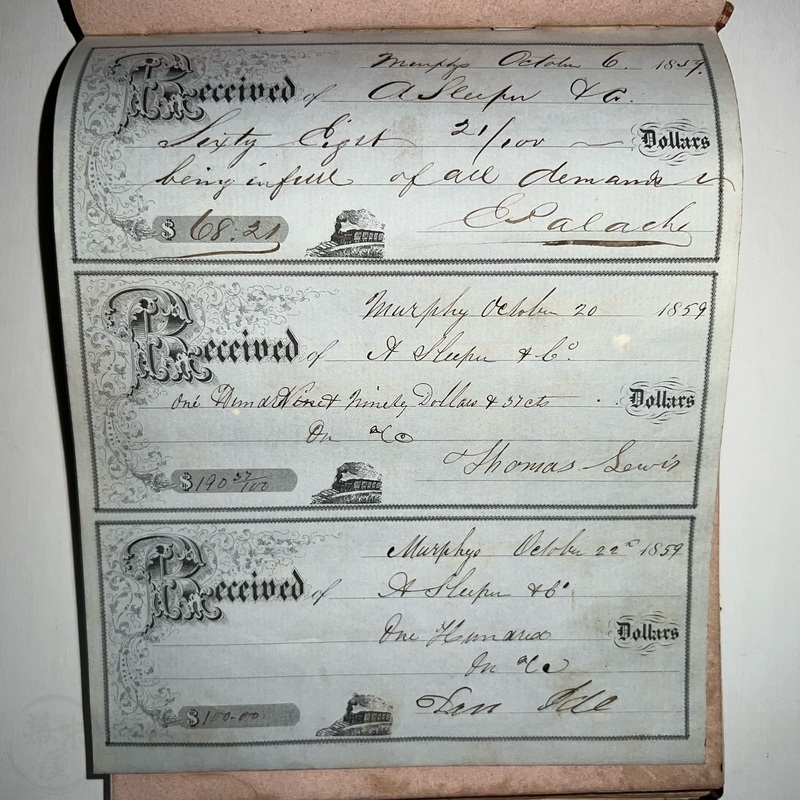 Murphys October 6. 1859.
Received of A Sleeper & Co.
Sixty Eight 21/100 Dollars
being in full of all demands
$ 68.21 E Palache
Murphy October 20 1859
Received of A Sleeper & Co.
One Hundr Ninet Ninety Dollars & 37 cts Dollars
On a/c
$190 37/100 Thomas Lewis
Murphys October 22d 1859
Received of A Sleeper & Co
One Hundred Dollars
On a/c
$100.00